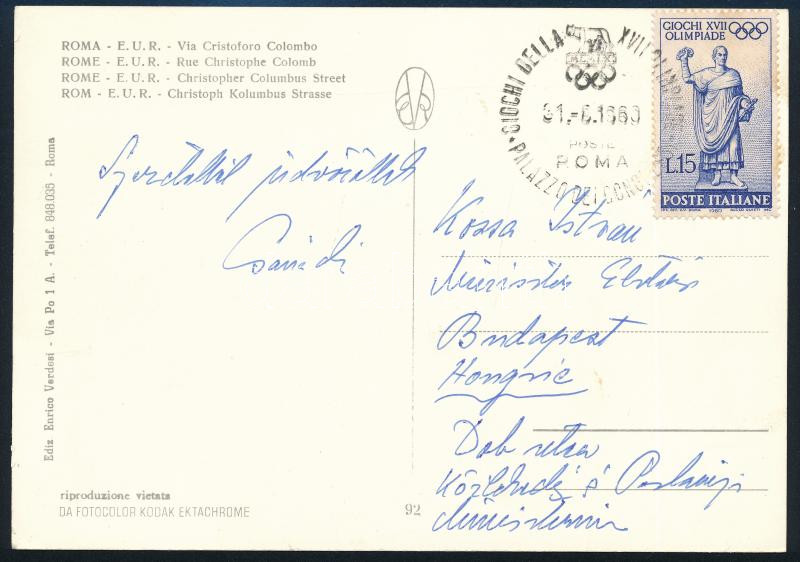 ROMA - E.U.R. - Via Cristoforo Colombo
ROME - E.U.R. - Rue Christophe Colomb
ROME - E.U.R. - Christopher Columbus Street
ROM - E.U.R. - Christoph Kolumbus Strasse
Ediz Enrico Verdesi - Via Po 1 A. - Telef. 848.035 - Roma
riproduzione vietata
DA FOTOCOLOR KODAK EKTACHROME
92
Szeretettel üdvözöllek
GIOCHI DELLA XVII OLIMPIADE
1960
POSTE
ROMA
PALAZZO DEI CONG
GIOCHI XVII
OLIMPIADE
L.15
POSTE ITALIANE
1960
Kossa István
Miniszter Elvtárs
Budapest
Hongrie
Dob utca
Közlekedés Postaügyi
Minisztérium